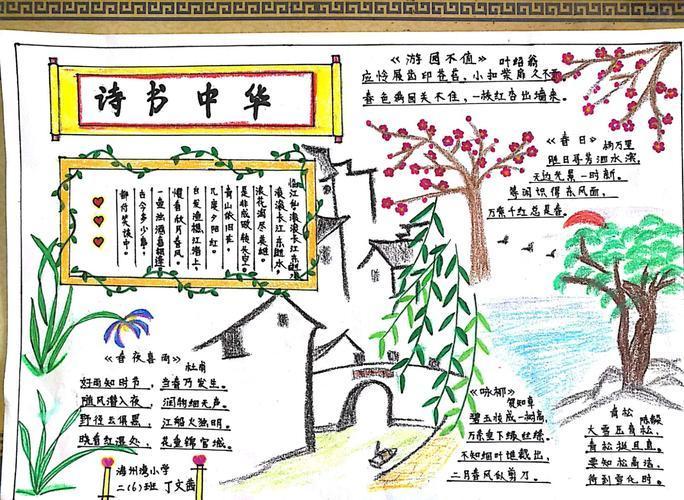 诗书中华
《游园不值》 叶绍翁
应怜屐齿印苍苔，小扣柴扉久不
春色满园关不住，一枝红杏出墙来。
《春日》 杨万里
胜日寻芳泗水滨，
无边光景一时新。
等闲识得东风面，
万紫千红总是春。
临江仙·滚滚长江东逝水
滚滚长江东逝水，
浪花淘尽英雄。
是非成败转头空。
青山依旧在，
几度夕阳红。
白发渔樵江渚上，
惯看秋月春风。
一壶浊酒喜相逢。
古今多少事，
都付笑谈中。
《春夜喜雨》 杜甫
好雨知时节，当春乃发生。
随风潜入夜，润物细无声。
野径云俱黑，江船火独明。
晓看红湿处，花重锦官城。
海州湾小学
二(6)班 丁文
《咏柳》
贺知章
碧玉妆成一树高，
万条垂下绿丝绦。
不知细叶谁裁出，
二月春风似剪刀。
青松 陈毅
大雪压青松，
青松挺且直。
要知松高洁，
待到雪化时。